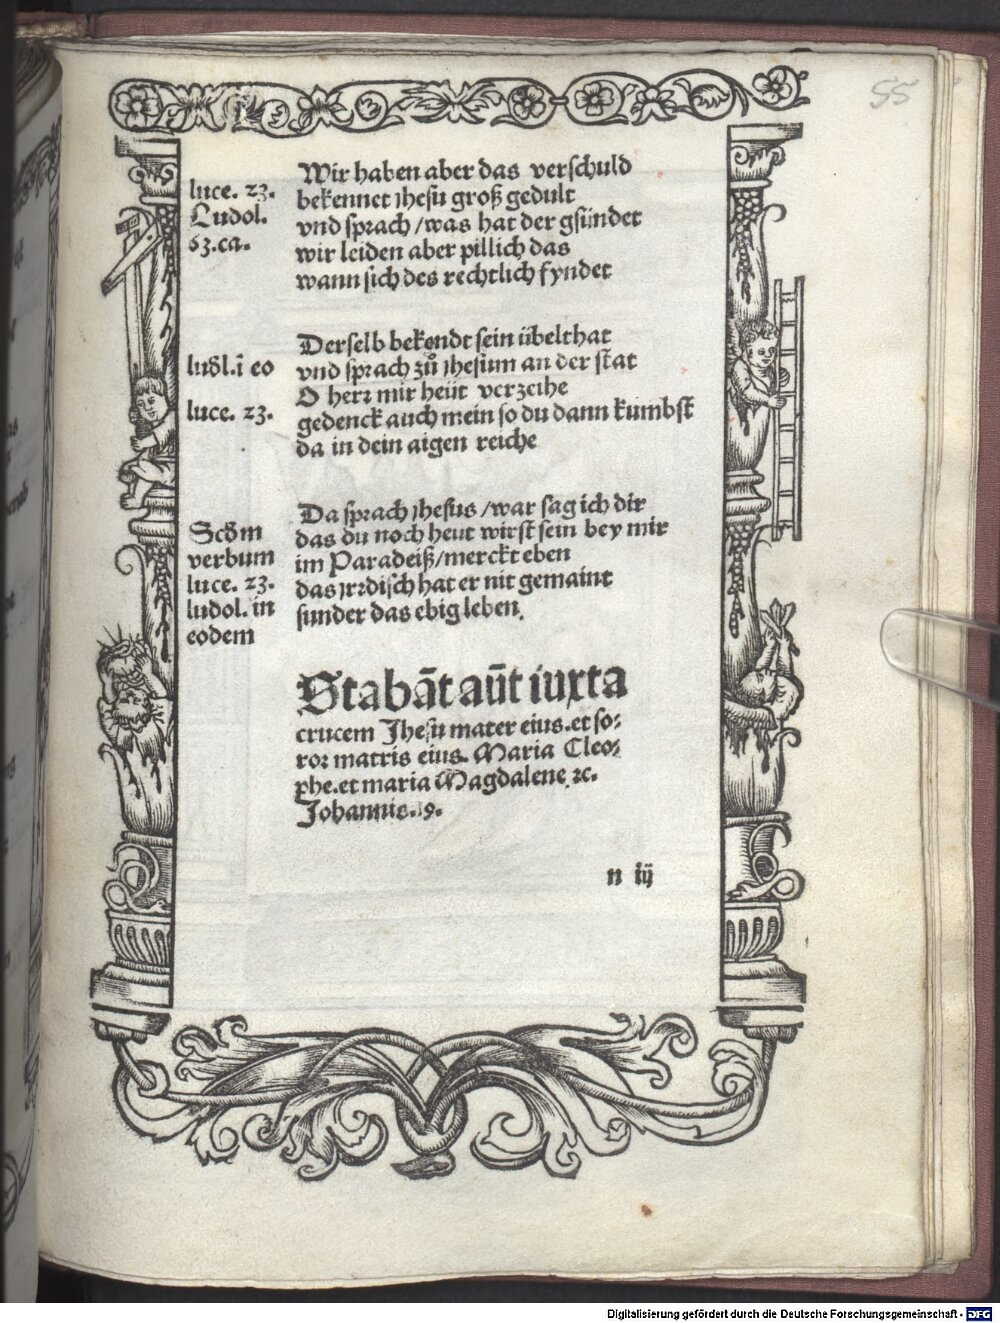 55
luce. 23.
Ludol.
63.ca.
Wir haben aber das verschuld
bekennet jhesu groß gedult
vnd sprach /was hat der gsündet
wir leiden aber pillich das
wann sich des rechtlich fyndet
ludl.ī eo
luce. 23.
Derselb bekendt sein übelthat
vnd sprach zů jhesum an der stat
O herr mir heüt verzeihe
gedenck auch mein so du dann kumbst
da in dein aigen reiche
Scd̄m
verbum
luce. 23.
ludol. in
eodem
Da sprach jhesus /war sag ich dir
das du noch heut wirst sein bey mir
im Paradeiß/merckt eben
das jrrdisch hat er nit gemaint
sunder das ebig leben.
Stabāt aūt iuxta
crucem Jhesu mater eius.et so⸗
ror matris eius. Maria Cleo⸗
phe.et maria Magdalene ꝛc.
Johannis.19.
n iij
Digitalisierung gefördert durch die Deutsche Forschungsgemeinschaft - DFG